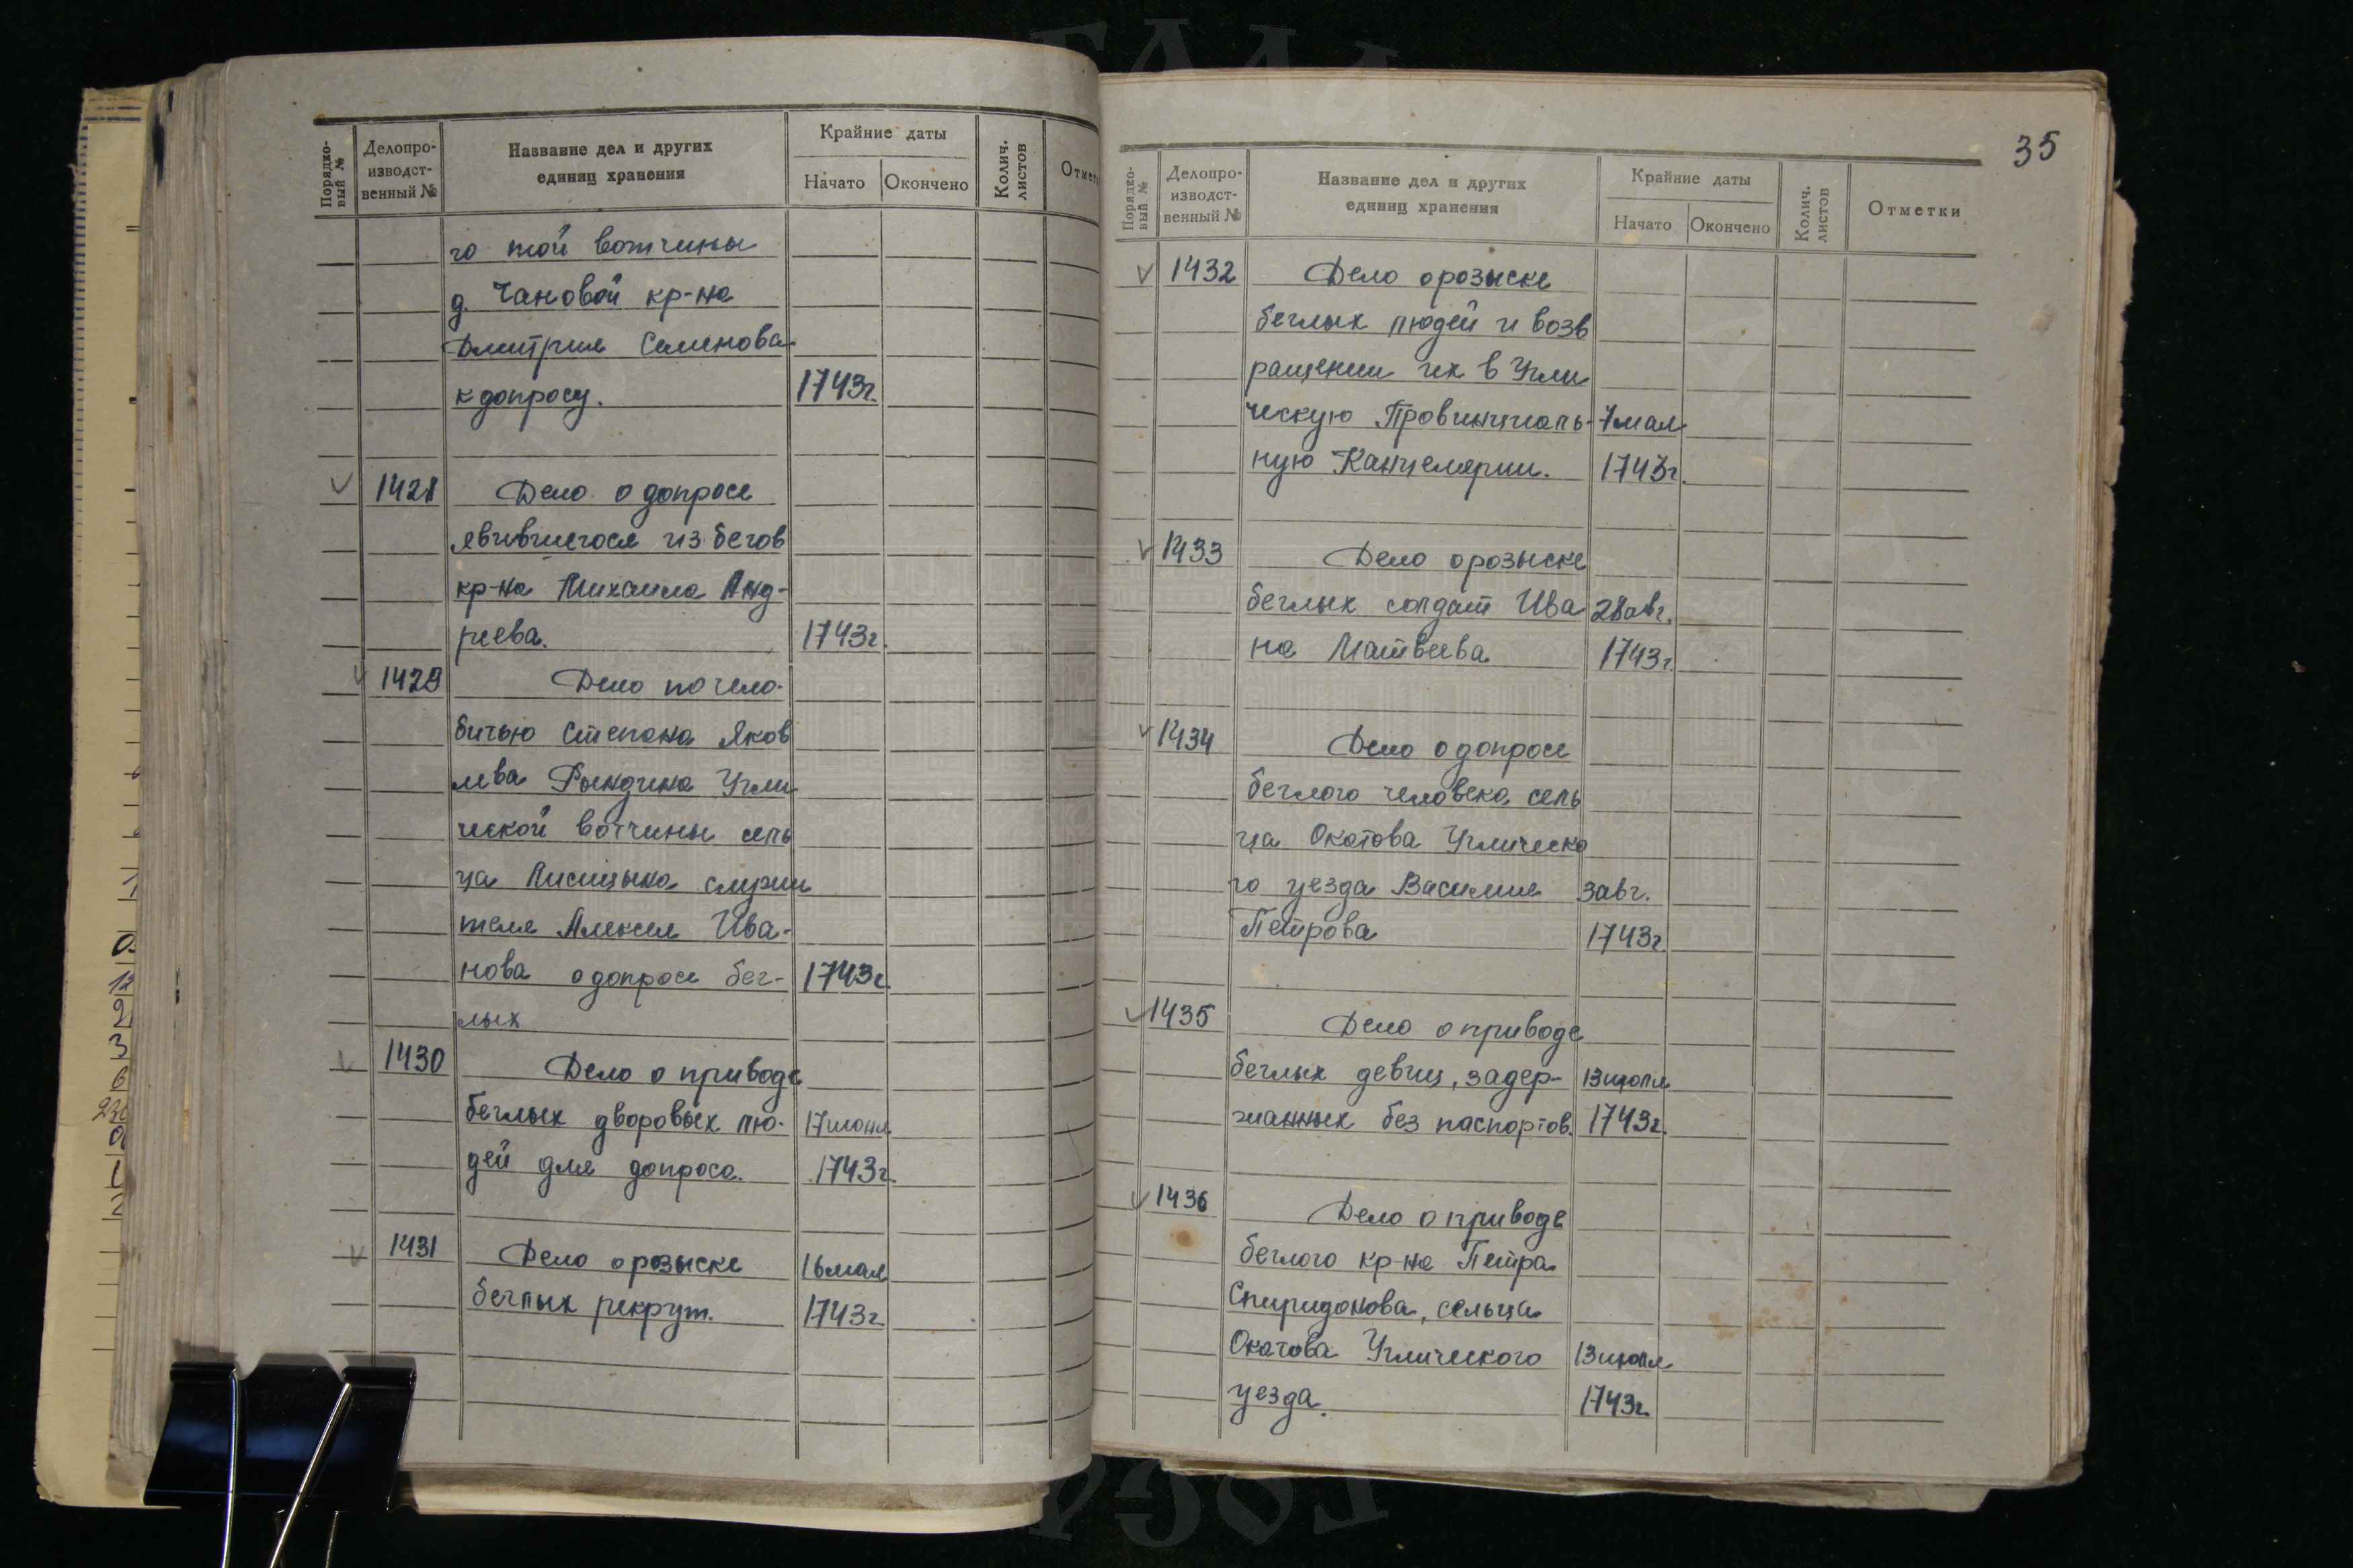 Порядко-
вый №
Делопро-
изводст-
венный №
Название дел и других
единиц хранения
Крайние даты
Начато
Окончено
Колич.
листов
го той вотчины
д. Чановой кр-на
Дмитрия Семенова
к допросу. 1743г.
1428 Дело о допросе
явившегося из бегов
кр-на Михаила Анд-
реева. 1743г.
1429 Дело по чело-
битью Степана Яков
лева Рындина Угли
ческой вотчины сель
ца Лисицына служи
теля Алексея Ива-
нова о допросе бег- 1743г
лых
1430 Дело о приводе
беглых дворовых лю- 17 июня
дей для допроса. 1743г.
1431 Дело о розыске 16 мая
беглых рекрут. 1743г.
35
Порядко-
вый №
Делопро-
изводст-
венный №
Название дел и других
единиц хранения
Крайние даты
Начато
Окончено
Колич.
листов
Отметки
1432 Дело о розыске
беглых людей и возв
ращении их в Угли
ческую Провинциаль- 7 мая
ную Канцелярии. 1743г.
1433 Дело о розыске
беглых солдат Ива 28 авг.
на Матвеева 1743г.
1434 Дело о допросе
беглого человека сель
ца Окатова Углическо
го уезда Василия 3 авг.
Петрова 1743г.
1435 Дело о приводе
беглых девиц, задер- 13 июля
жанных без паспортов. 1743г.
1436 Дело о приводе
беглого кр-на Петра
Спиридонова, сельца
Окатова Углического 13 июля
уезда. 1743г.